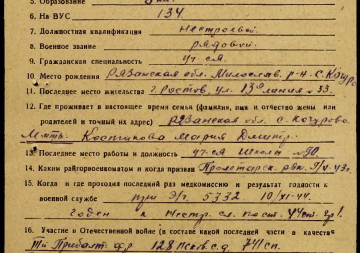 5. Образование 3 кл.
6. На ВУС 134
7. Должностная квалификация нестроевой
8. Военное звание рядовой
9. Гражданская специальность уч-ся
10. Место рождения Рязанская обл. Милослав. р-н с.
11. Последнее место жительства г. Ростов, ул. 13я линия № 33.
12. Где проживает в настоящее время семья (фамилия, имя и отчество жены или
родителей и точный их адрес) Рязанская обл. с.
Мать: Мария Дмитр.
13. Последнее место работы и должность уч-ся школ № 90
14. Каким райгорвоенкоматом и когда призван Пролетарск. рвк.
15. Когда и где проходил последний раз медкомиссию и результат годности к
военной службе при Э/г. 5332 10/XI-44.
годен к нестр. сл. по ст.
16. Участие в Отечественной войне (в составе какой последней части в качестве
Прибалт. фр 128 псков. сд 741 сп.